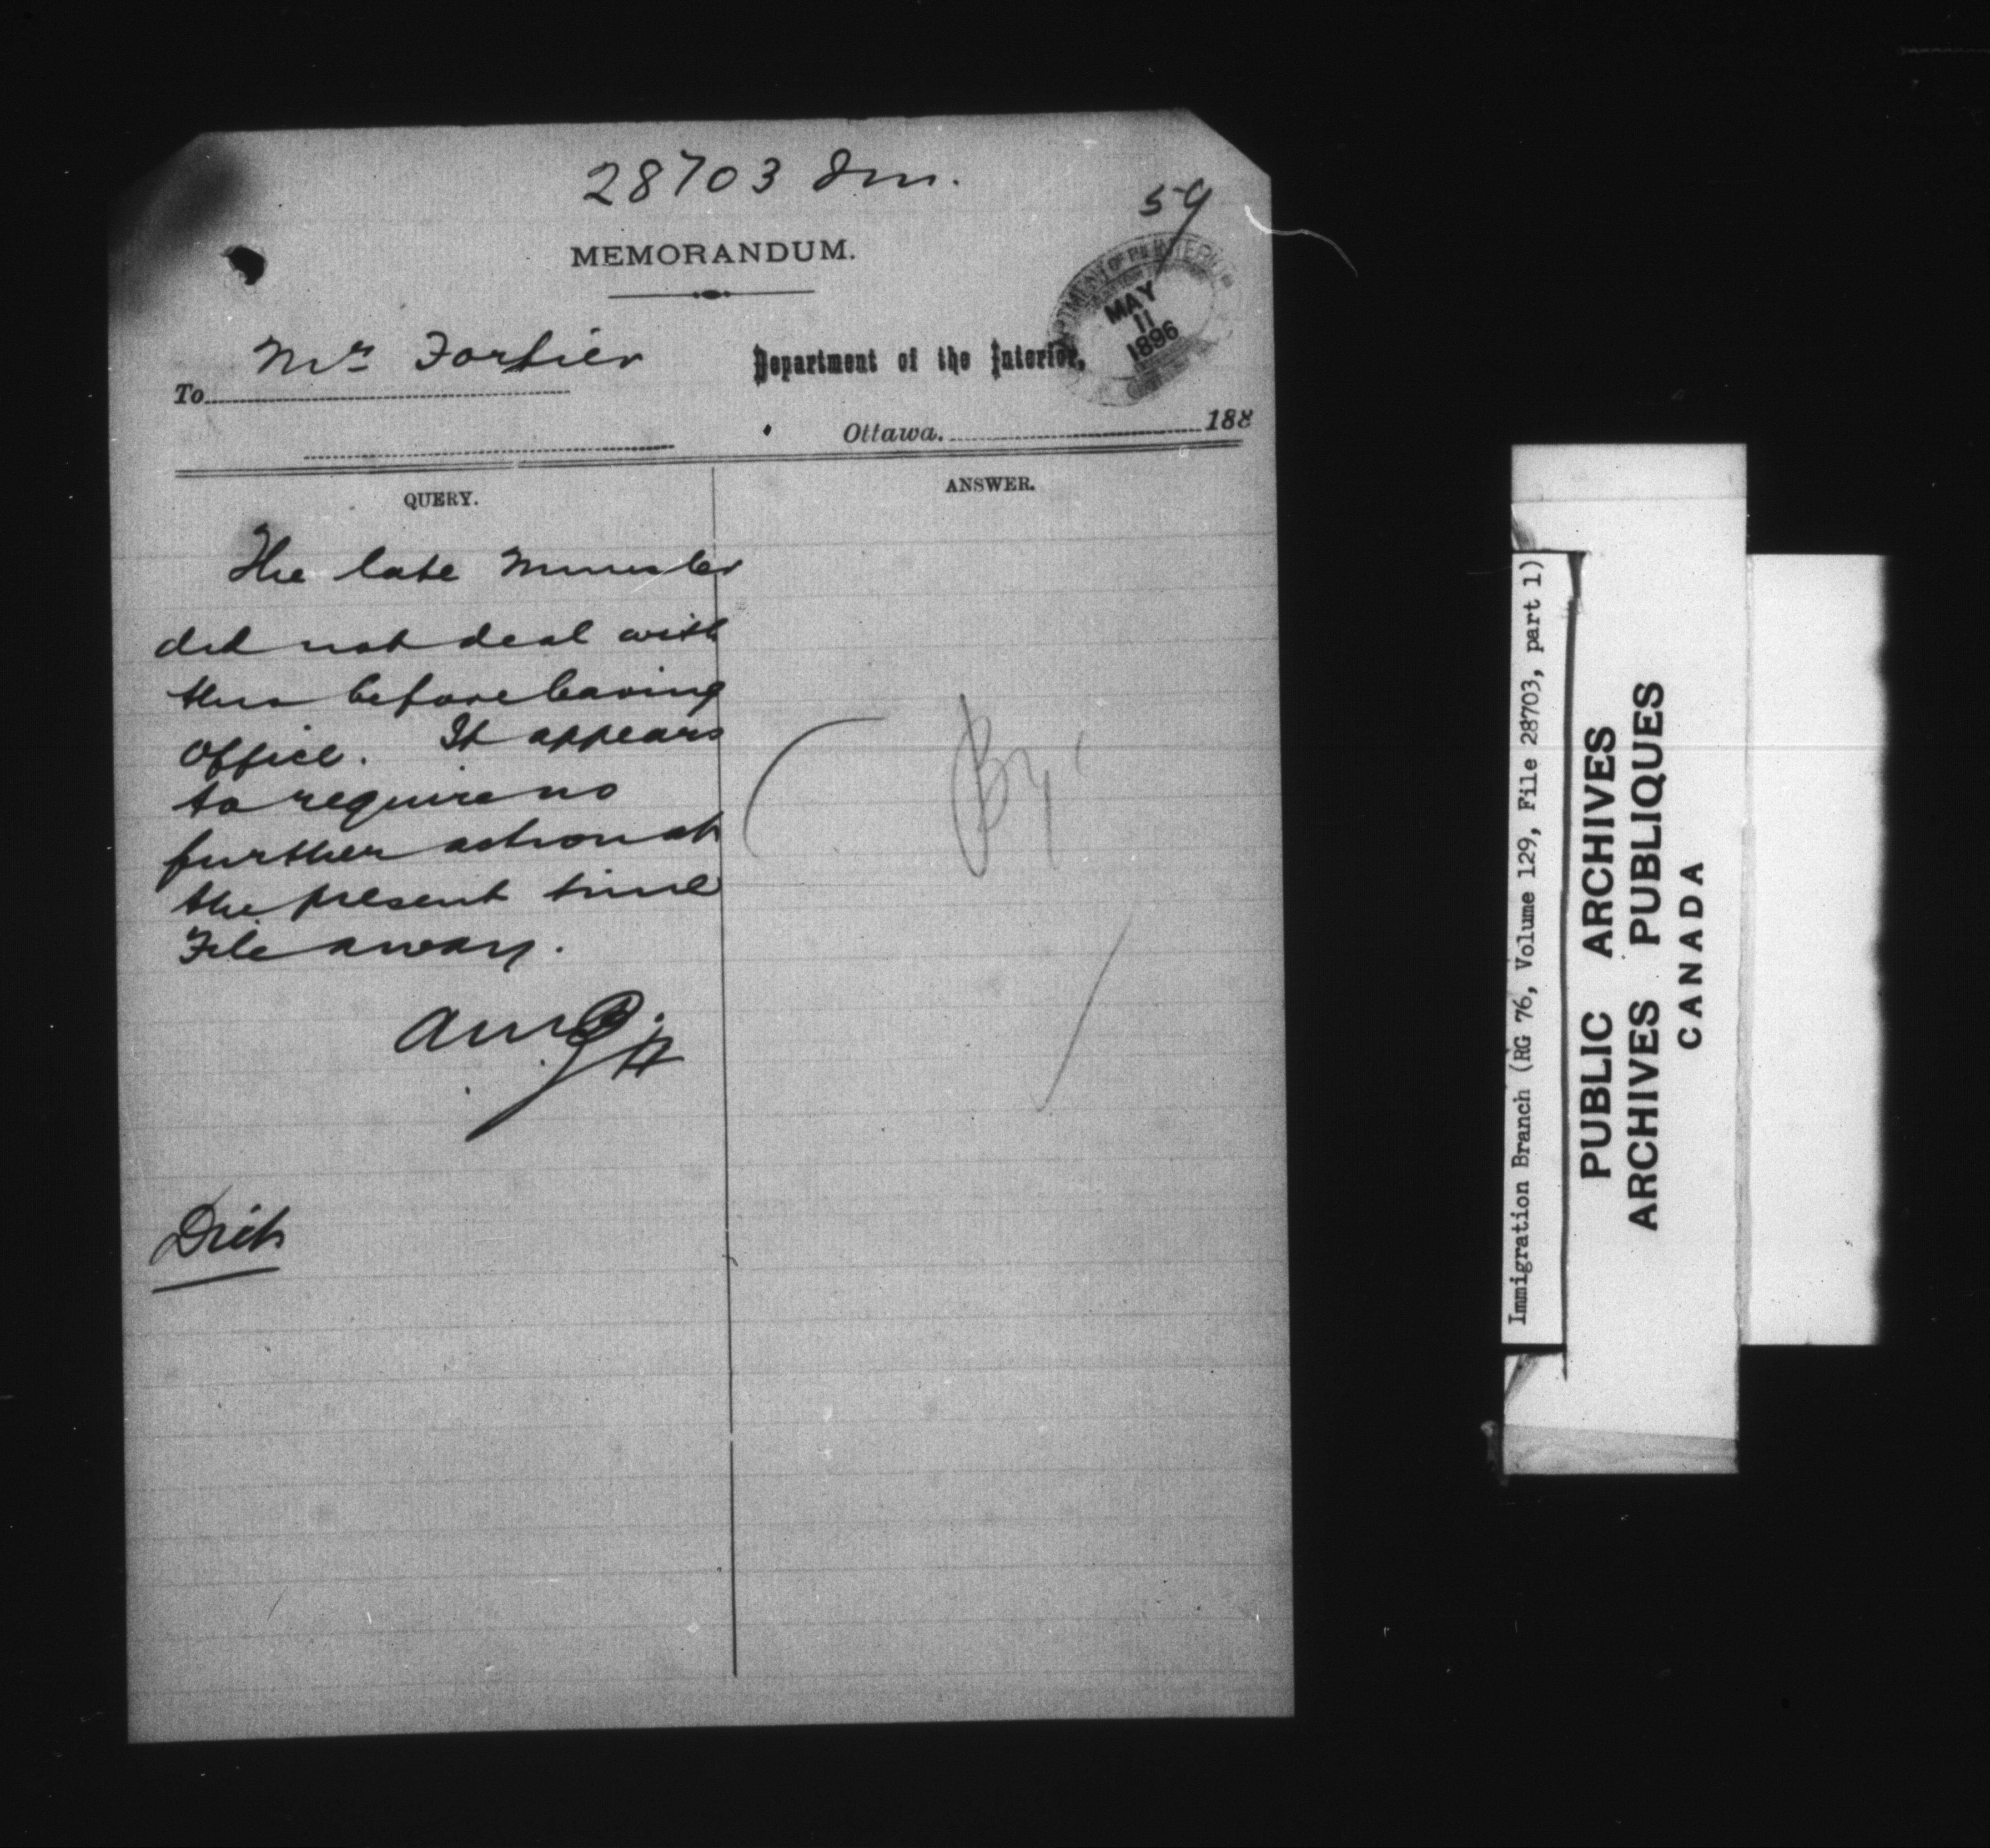 28703 Im.
59
MEMORANDUM.
DEPARTMENT OF THE INTERIOR
MAY
11
1896
To Mr Fortier
Department of the Interior,
Ottawa, 188
QUERY.
ANSWER.
The late Minister
did not deal with
this before leaving
office. It appears
to require no
further action at
the present time
File away.
Immigration Branch (RG 76, Volume 129, File 28703, part 1)
PUBLIC ARCHIVES
ARCHIVES PUBLIQUES
CANADA